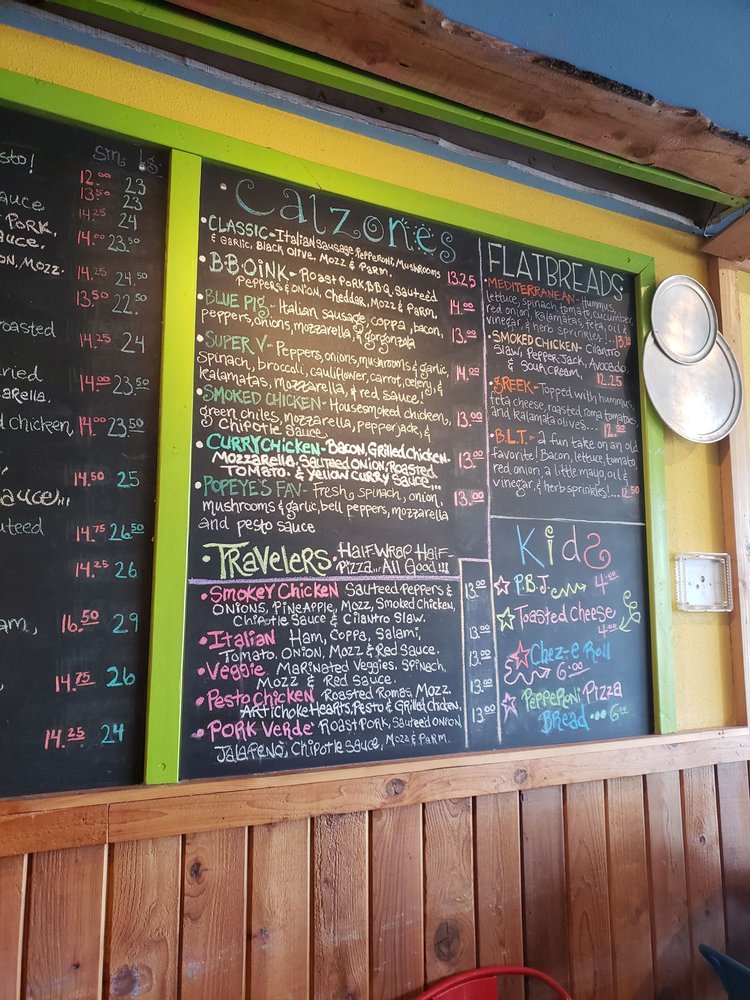 sto!
sm. lg.
12.00 23
13.50 23
sauce 14.25 24
Pork, 14.00 23.50
sauce.
on, Mozz. 14.25 24.50
13.50 22.50
roasted 14.25 24
ried 14.00 23.50
arella.
d chicken, 14.00 23.50
14.50 25
sauce!!!
uteed 14.75 26.50
14.25 26
am, 16.50 29
14.75 26
14.25 24
Calzones
•CLASSIC-Italian sausage, Pepperoni, Mushrooms
& Garlic, Black Olive, Mozz & Parm. 13.25
•B.B.OINK-Roast Pork, BBQ, Sauteed
Peppers & Onion, Cheddar, Mozz & Parm. 14.00
•BLUE Pig-Italian sausage, coppa, bacon,
peppers, onions, mozzarella, & gorgonzola 13.00
•SUPER V-Peppers, onions, mushrooms & garlic,
spinach, broccoli, cauliflower, carrot, celery, &
kalamatas, mozzarella, & red sauce! 14.00
•SMOKED CHICKEN-Housesmoked chicken,
green chiles, mozzarella, pepperjack, &
Chipotle Sauce 13.00
•CURRY CHICKEN-Bacon, Grilled Chicken-
Mozzarella, Sauteed Onion, Roasted
Tomato. & Yellow Curry Sauce... 13.00
•POPEYE'S FAV-Fresh, spinach, onion,
mushrooms & garlic, bell peppers, mozzarella
and pesto sauce 13.00
•TRavelers• Half Wrap Half-
Pizza... All Good!!!
•Smokey Chicken Sauteed Peppers &
Onions, Pineapple, Mozz, Smoked Chicken,
Chipotle Sauce & Cilantro Slaw. 13.00
•Italian Ham, Coppa, Salami,
Tomato. Onion, Mozz & Red Sauce. 13.00
•Veggie Marinated Veggies. Spinach.
Mozz & Red Sauce. 13.00
•Pesto Chicken Roasted Romas, Mozz.
Artichoke Hearts, Pesto & Grilled Chicken. 13.00
•Pork Verde Roast Pork, Sauteed Onion
Jalapeño, Chipotle Sauce, Mozz & Parm. 13.00
FLATBREADS.
•MEDITERRANEAN-Hummus,
lettuce, spinach, tomato, cucumber,
red onion, kalamatas, feta, oil &
vinegar, & herb sprinkles!..
•SMOKED CHICKEN-Cilantro
Slaw, Pepper Jack, Avocado,
& Sour Cream 12.25
•GREEK-Topped with hummus,
feta cheese, roasted roma tomatoes,
and kalamata olives... 12.00
•B.L.T.-a fun take on an old
favorite! Bacon, lettuce, tomato,
red onion, a little mayo, oil &
vinegar, & herb sprinkles!.... 12.50
Kids
P.B.J. 4.00
Toasted Cheese
4.00
Chez-E Roll
6.00
Pepperoni Pizza
Bread... 6.00